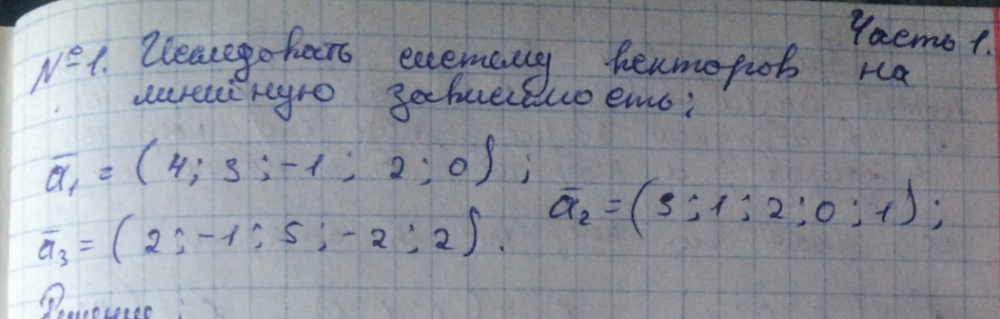 Часть 1.
№1. Исследовать систему векторов на
линейную зависимость:
ā₁ = (4; 3; -1; 2; 0);
ā₂ = (3; 1; 2; 0; 1);
ā₃ = (2; -1; 5; -2; 2).
Решение: